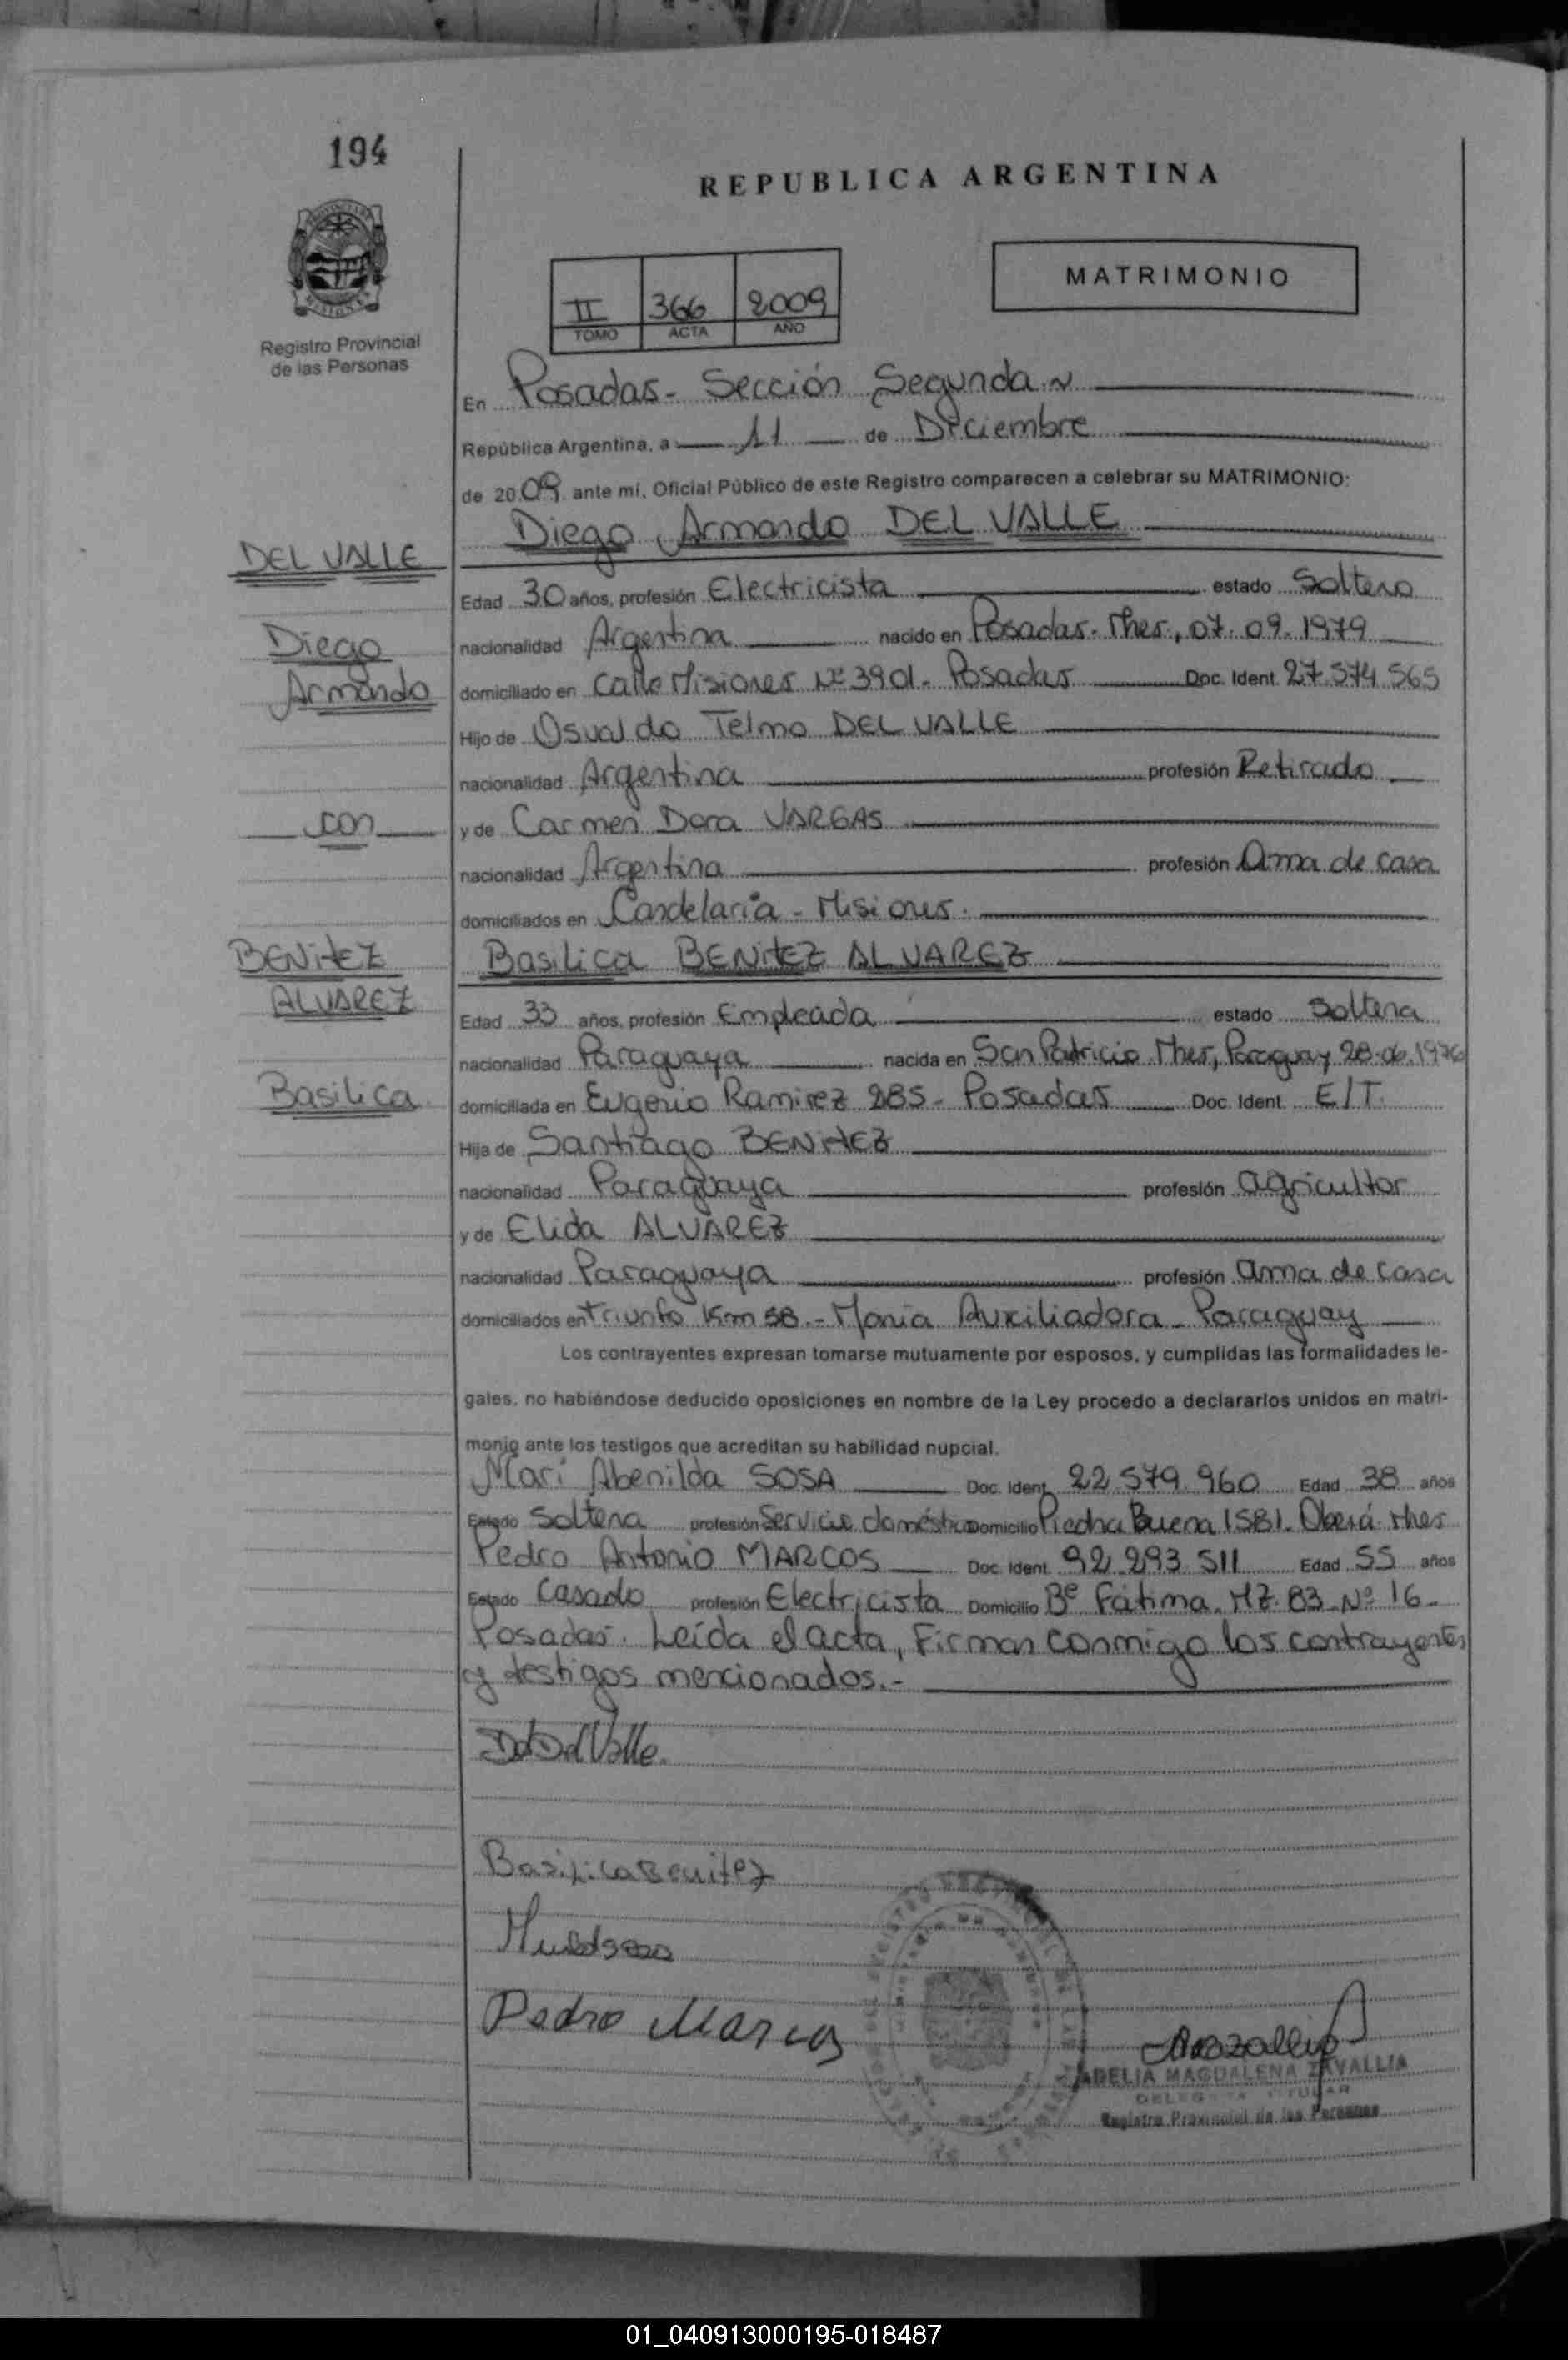 194
REPUBLICA ARGENTINA
MATRIMONIO
II 366 2009
TOMO ACTA AÑO
Registro Provincial
de las Personas
En Posadas - Sección Segunda
República Argentina, a 11 de Diciembre
de 2009 ante mí, Oficial Público de este Registro comparecen a celebrar su MATRIMONIO:
Diego Armando DEL VALLE
DEL VALLE
Edad 30 años, profesión Electricista estado Soltero
Diego
nacionalidad Argentina nacido en Posadas - Mnes, 07. 09. 1979
Armando
domiciliado en calle Misiones Nº 3901 - Posadas Doc. Ident. 27.574.565
Hijo de Osvaldo Telmo DEL VALLE
nacionalidad Argentina profesión Retirado
con
y de Carmen Dora VARGAS
nacionalidad Argentina profesión Ama de casa
domiciliados en Candelaria - Misiones.
BENITEZ
Basilica BENITEZ ALVAREZ
ALVAREZ
Edad 33 años, profesión Empleada estado Soltera
nacionalidad Paraguaya nacida en San Patricio Mnes, Paraguay 28.06.1976
Basilica
domiciliada en Eugenio Ramirez 285 - Posadas Doc. Ident. E/T.
Hija de Santiago BENITEZ
nacionalidad Paraguaya profesión agricultor
y de Elida ALVAREZ
nacionalidad Paraguaya profesión ama de casa
domiciliados en triunfo Km 58 - Maria Auxiliadora - Paraguay
Los contrayentes expresan tomarse mutuamente por esposos, y cumplidas las formalidades le-
gales, no habiéndose deducido oposiciones en nombre de la Ley procedo a declararlos unidos en matri-
monio ante los testigos que acreditan su habilidad nupcial.
Mari Abenilda SOSA Doc. Ident. 22.579.960 Edad 38 años
Estado Soltera profesión Servicio doméstico Domicilio Piedra Buena 1581. Oberá - Mnes
Pedro Antonio MARCOS Doc. Ident. 92.293.511 Edad 55 años
Estado Casado profesión Electricista Domicilio Bº Fátima. MZ. 83 - Nº 16 -
Posadas. Leída el acta, Firman conmigo los contrayentes
y testigos mencionados.-
Basilica Benitez
Pedro Marcos
ADELIA MAGDALENA ZAVALLIA
DELEGADA TITULAR
Registro Provincial de las Personas
01_040913000195-018487